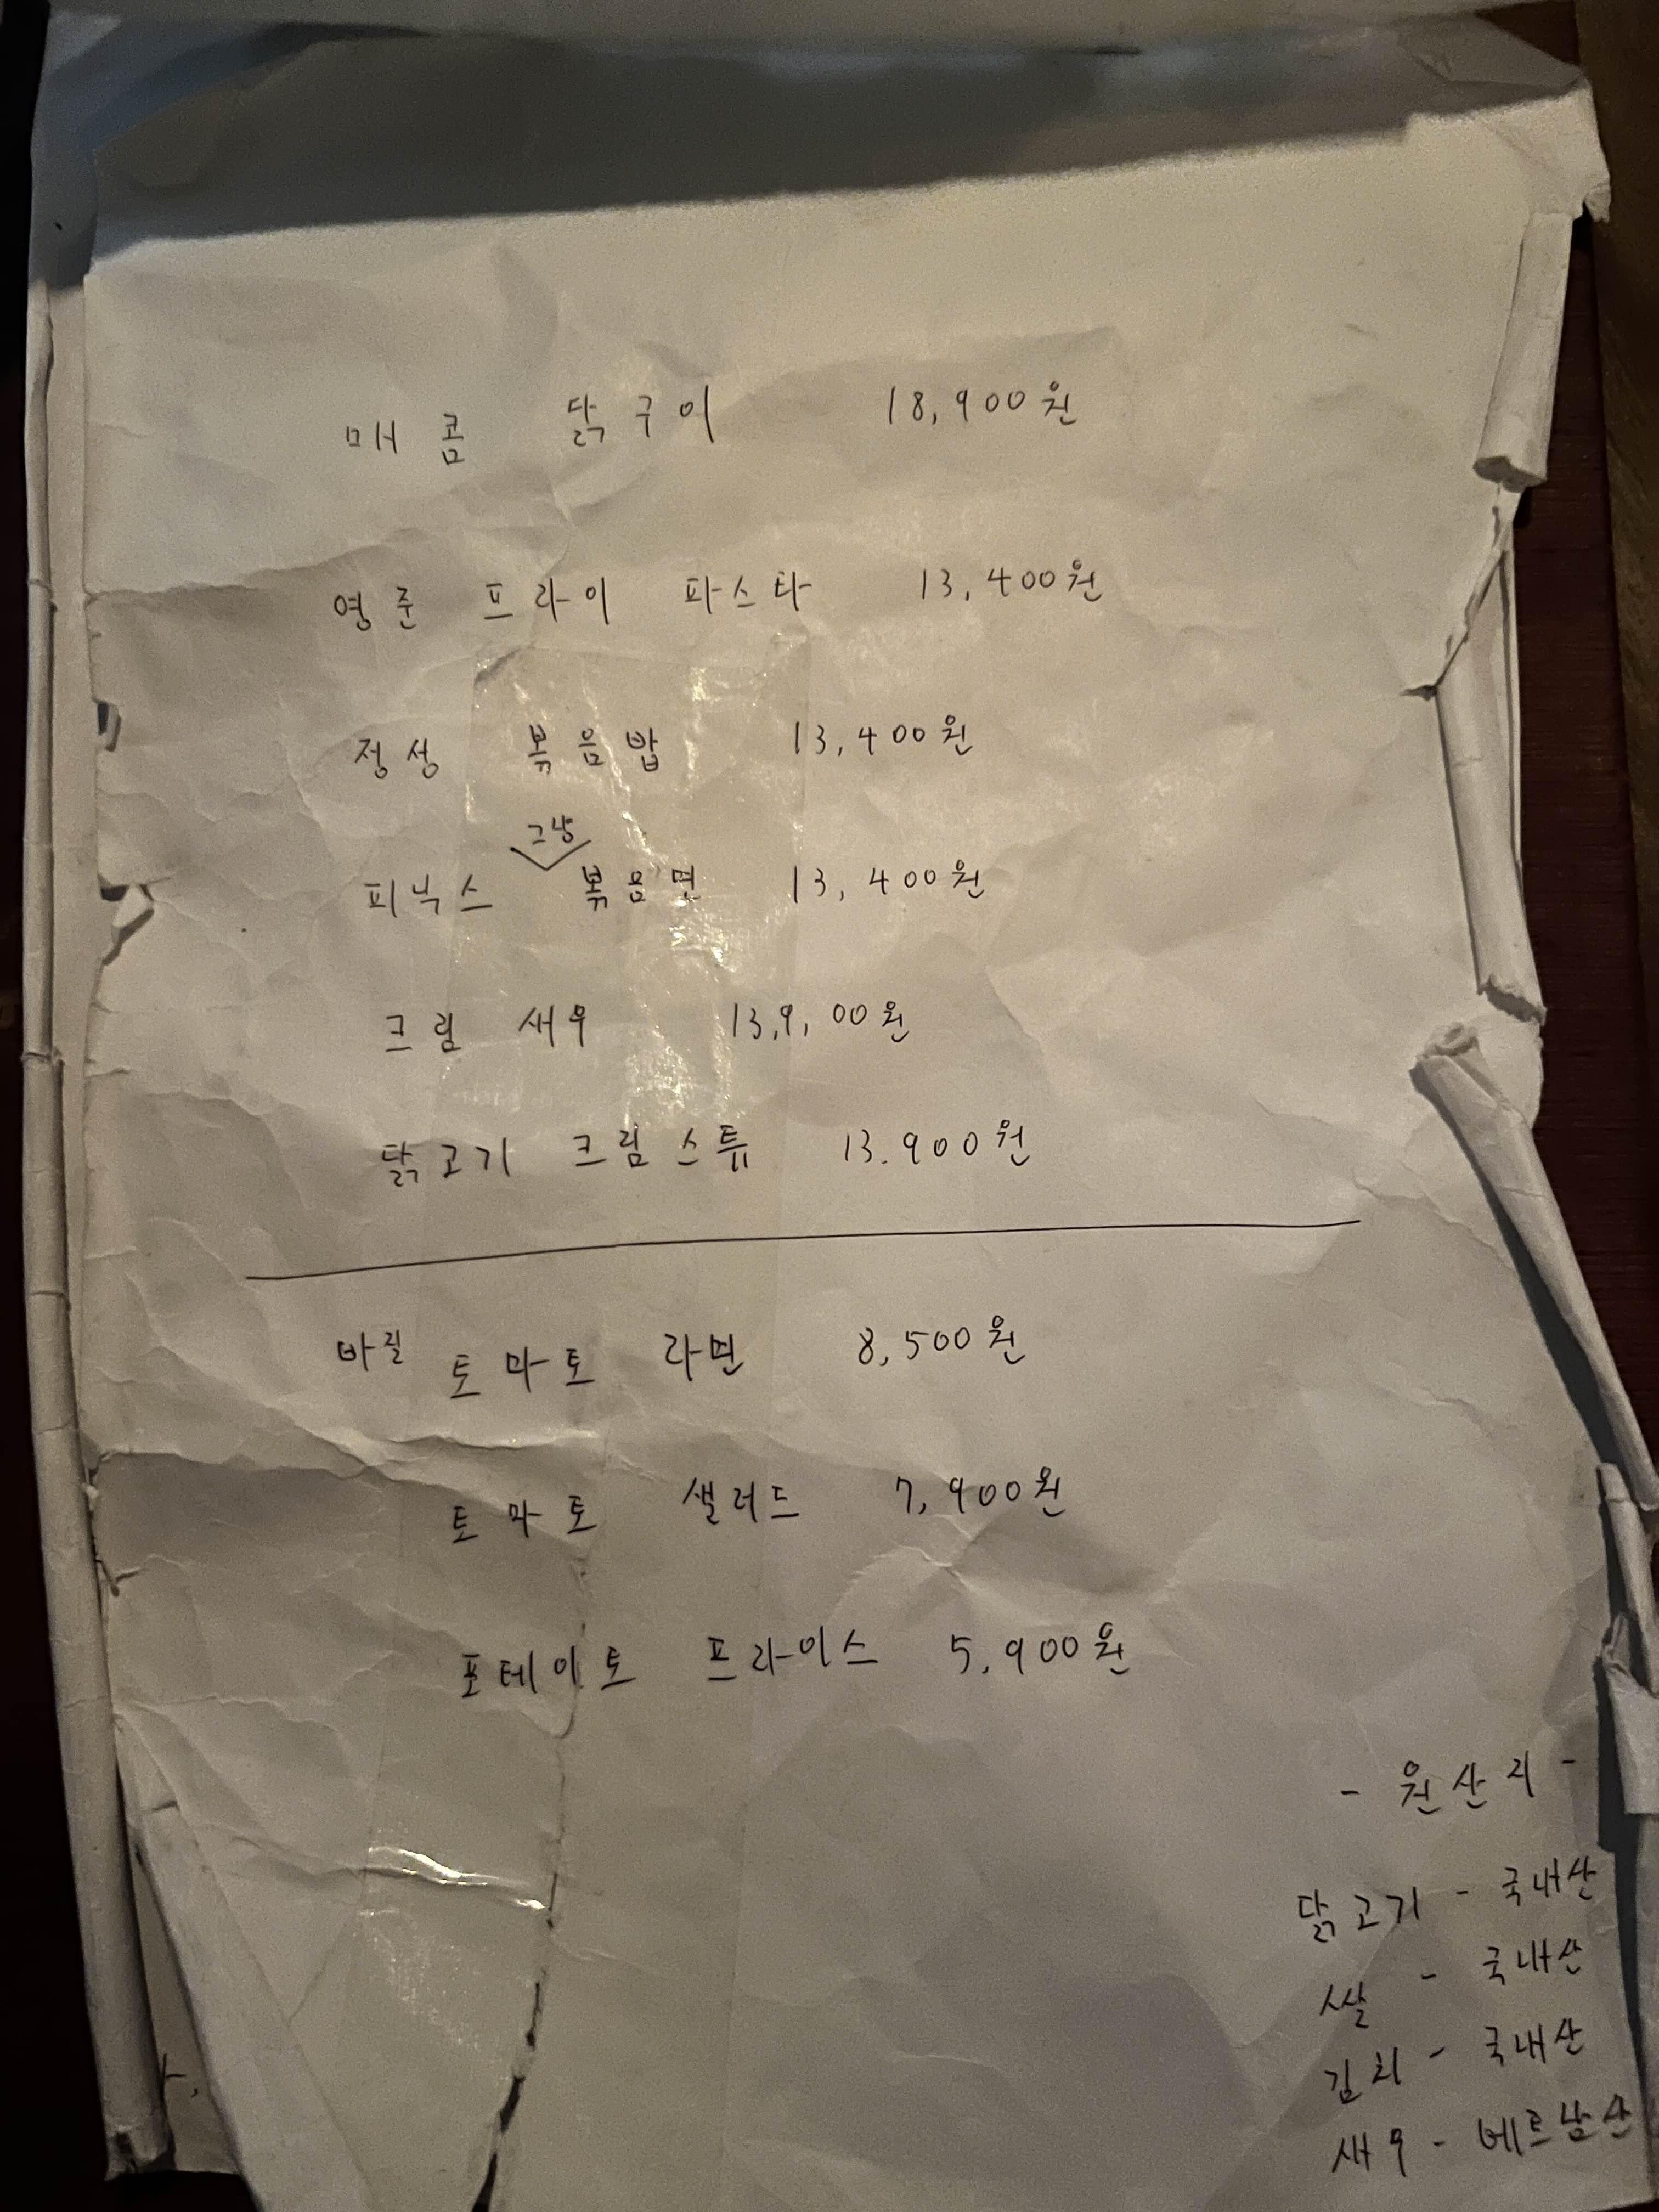 매콤 닭구이 18,900원
영준 프라이 파스타 13,400원
정성 볶음밥 13,400원
그냥
피닉스 볶음면 13,400원
크림 새우 13,9,00원
닭고기 크림스튜 13.900원
바질 토마토 라면 8,500원
토마토 샐러드 7,900원
포테이토 프라이스 5,900원
- 원산지 -
닭고기 - 국내산
쌀 - 국내산
김치 - 국내산
새우 - 베트남산